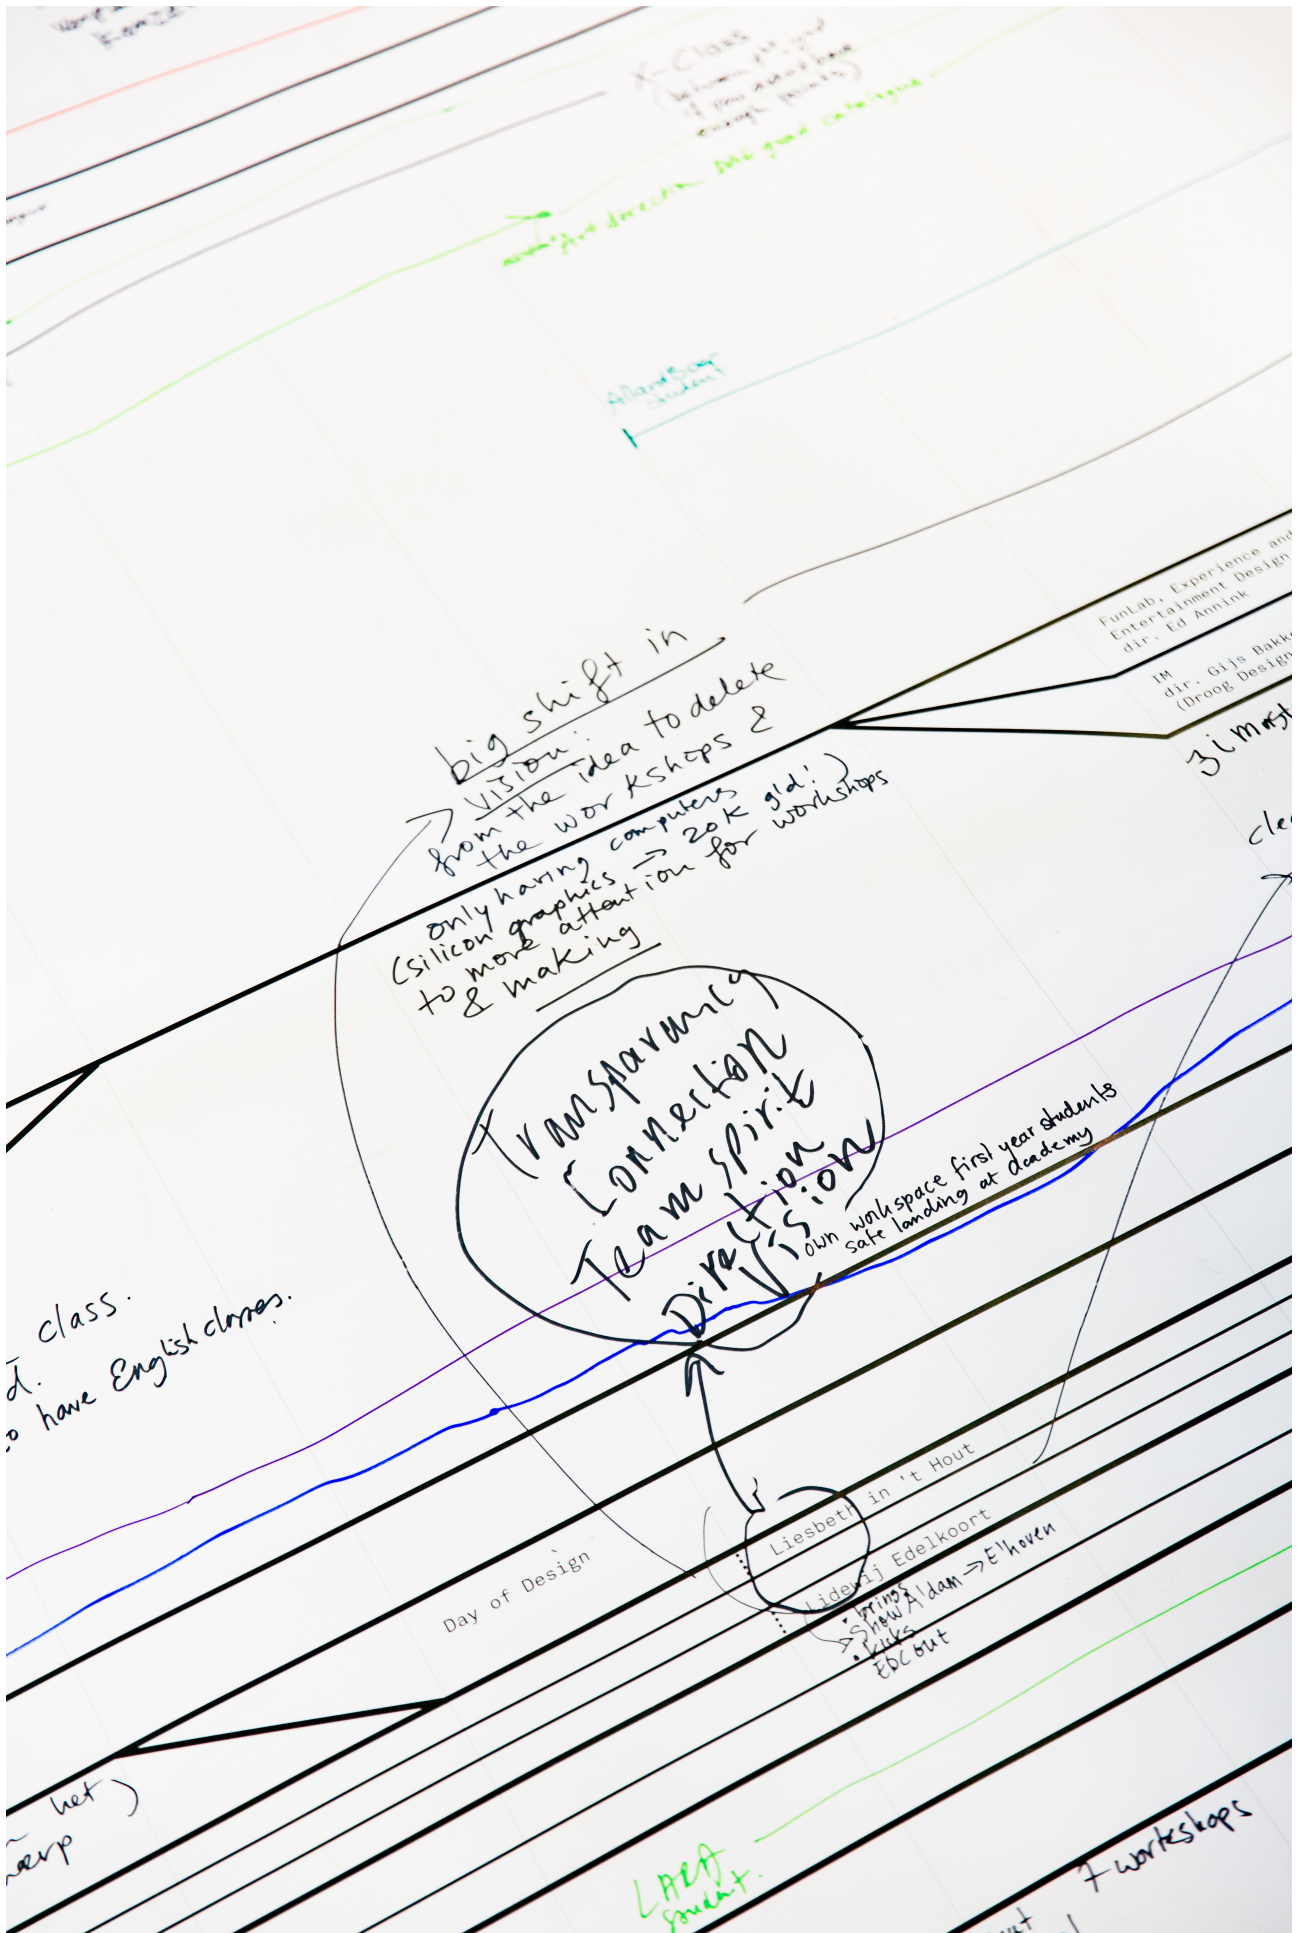 X-Class
enough points)
Art direction
student
FunLab, Experience and
Entertainment Design
dir. Ed Annink
IM
dir. Gijs Bakke
(Droog Design
big shift in
vision:
from the idea to delete
the workshops &
only having computers
(silicon graphics → 20K gld!)
to more attention for workshops
& making
Transparancy
Connection
Team spirit
Direction
Vision
own workspace first year students
safe landing at academy
class.
d.
have English classes.
Liesbeth in 't Hout
Lidewij Edelkoort
Day of Design
• brings
show A'dam → E'hoven
• kicks
EDC out
het )
werp
LARA
student.
7 workshops